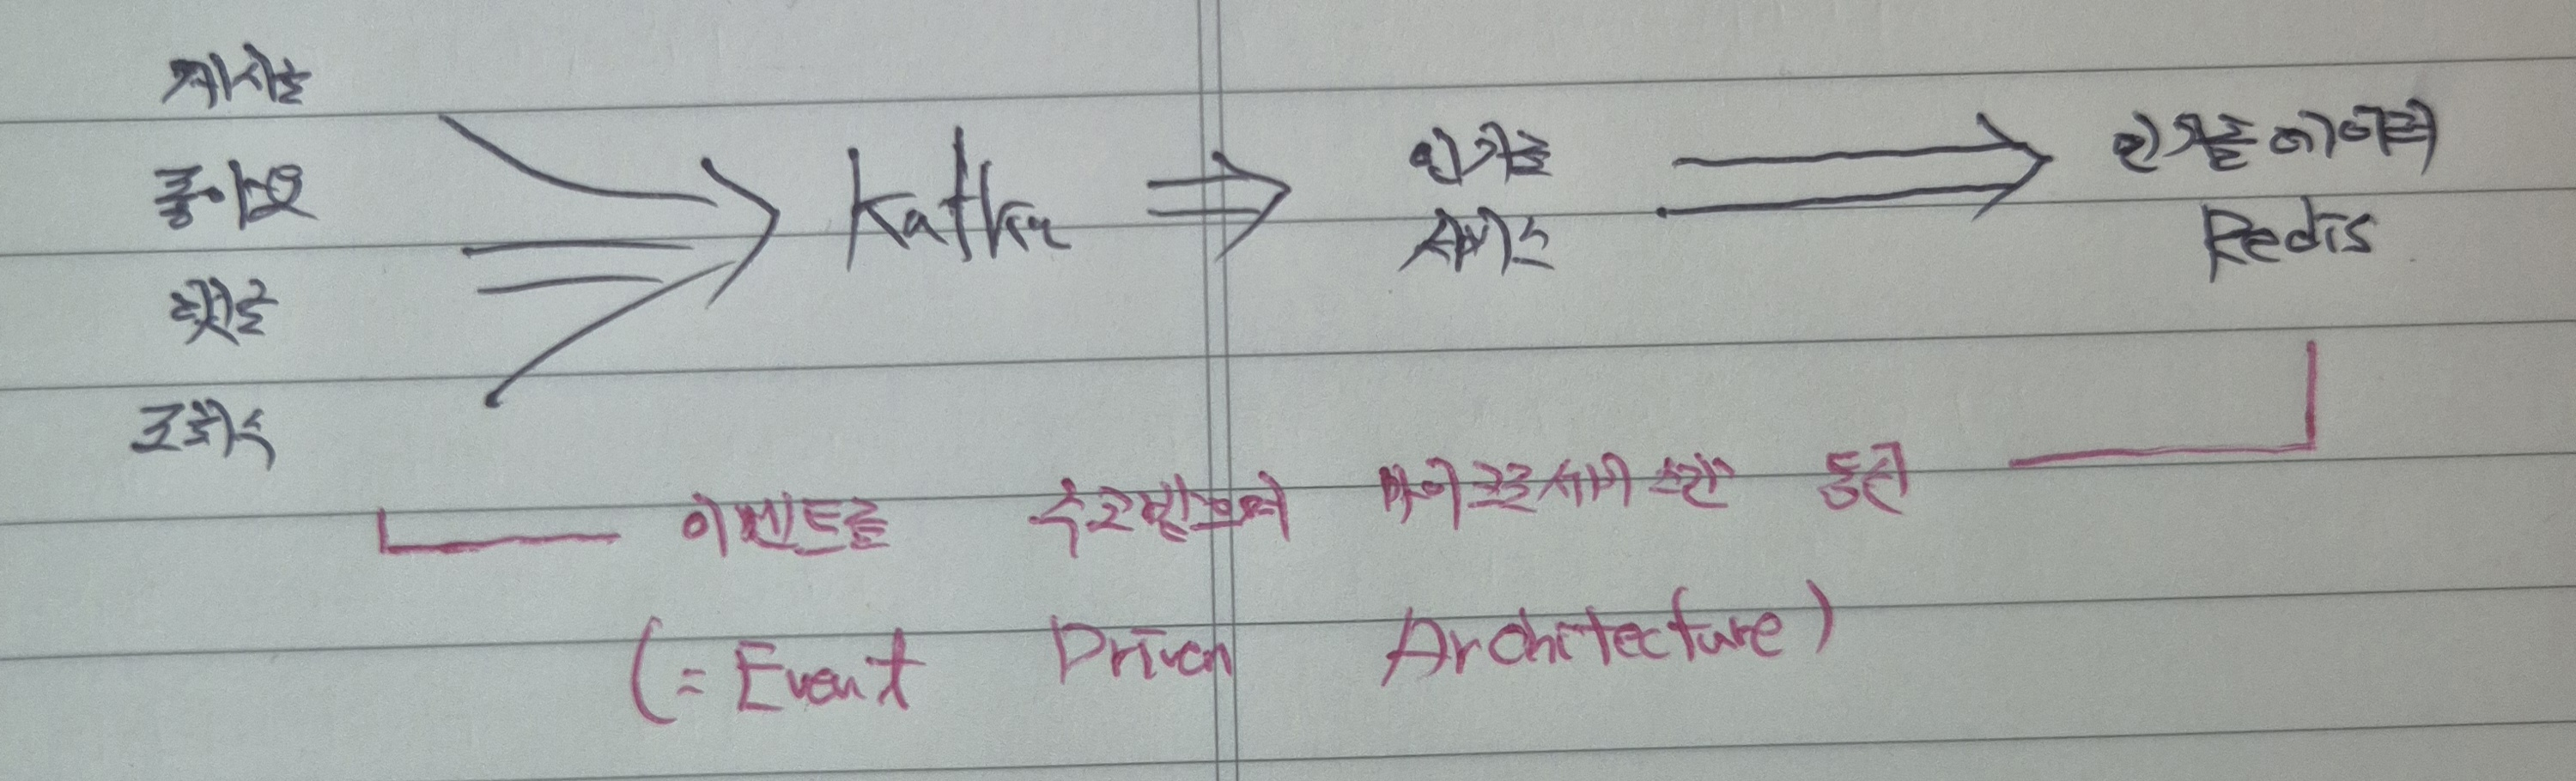 게시글
좋아요
댓글
조회수
Kafka
인기글
서비스
인기글 데이터
Redis
이벤트를 주고받으며 마이크로서비스간 통신
(= Event Driven Architecture)